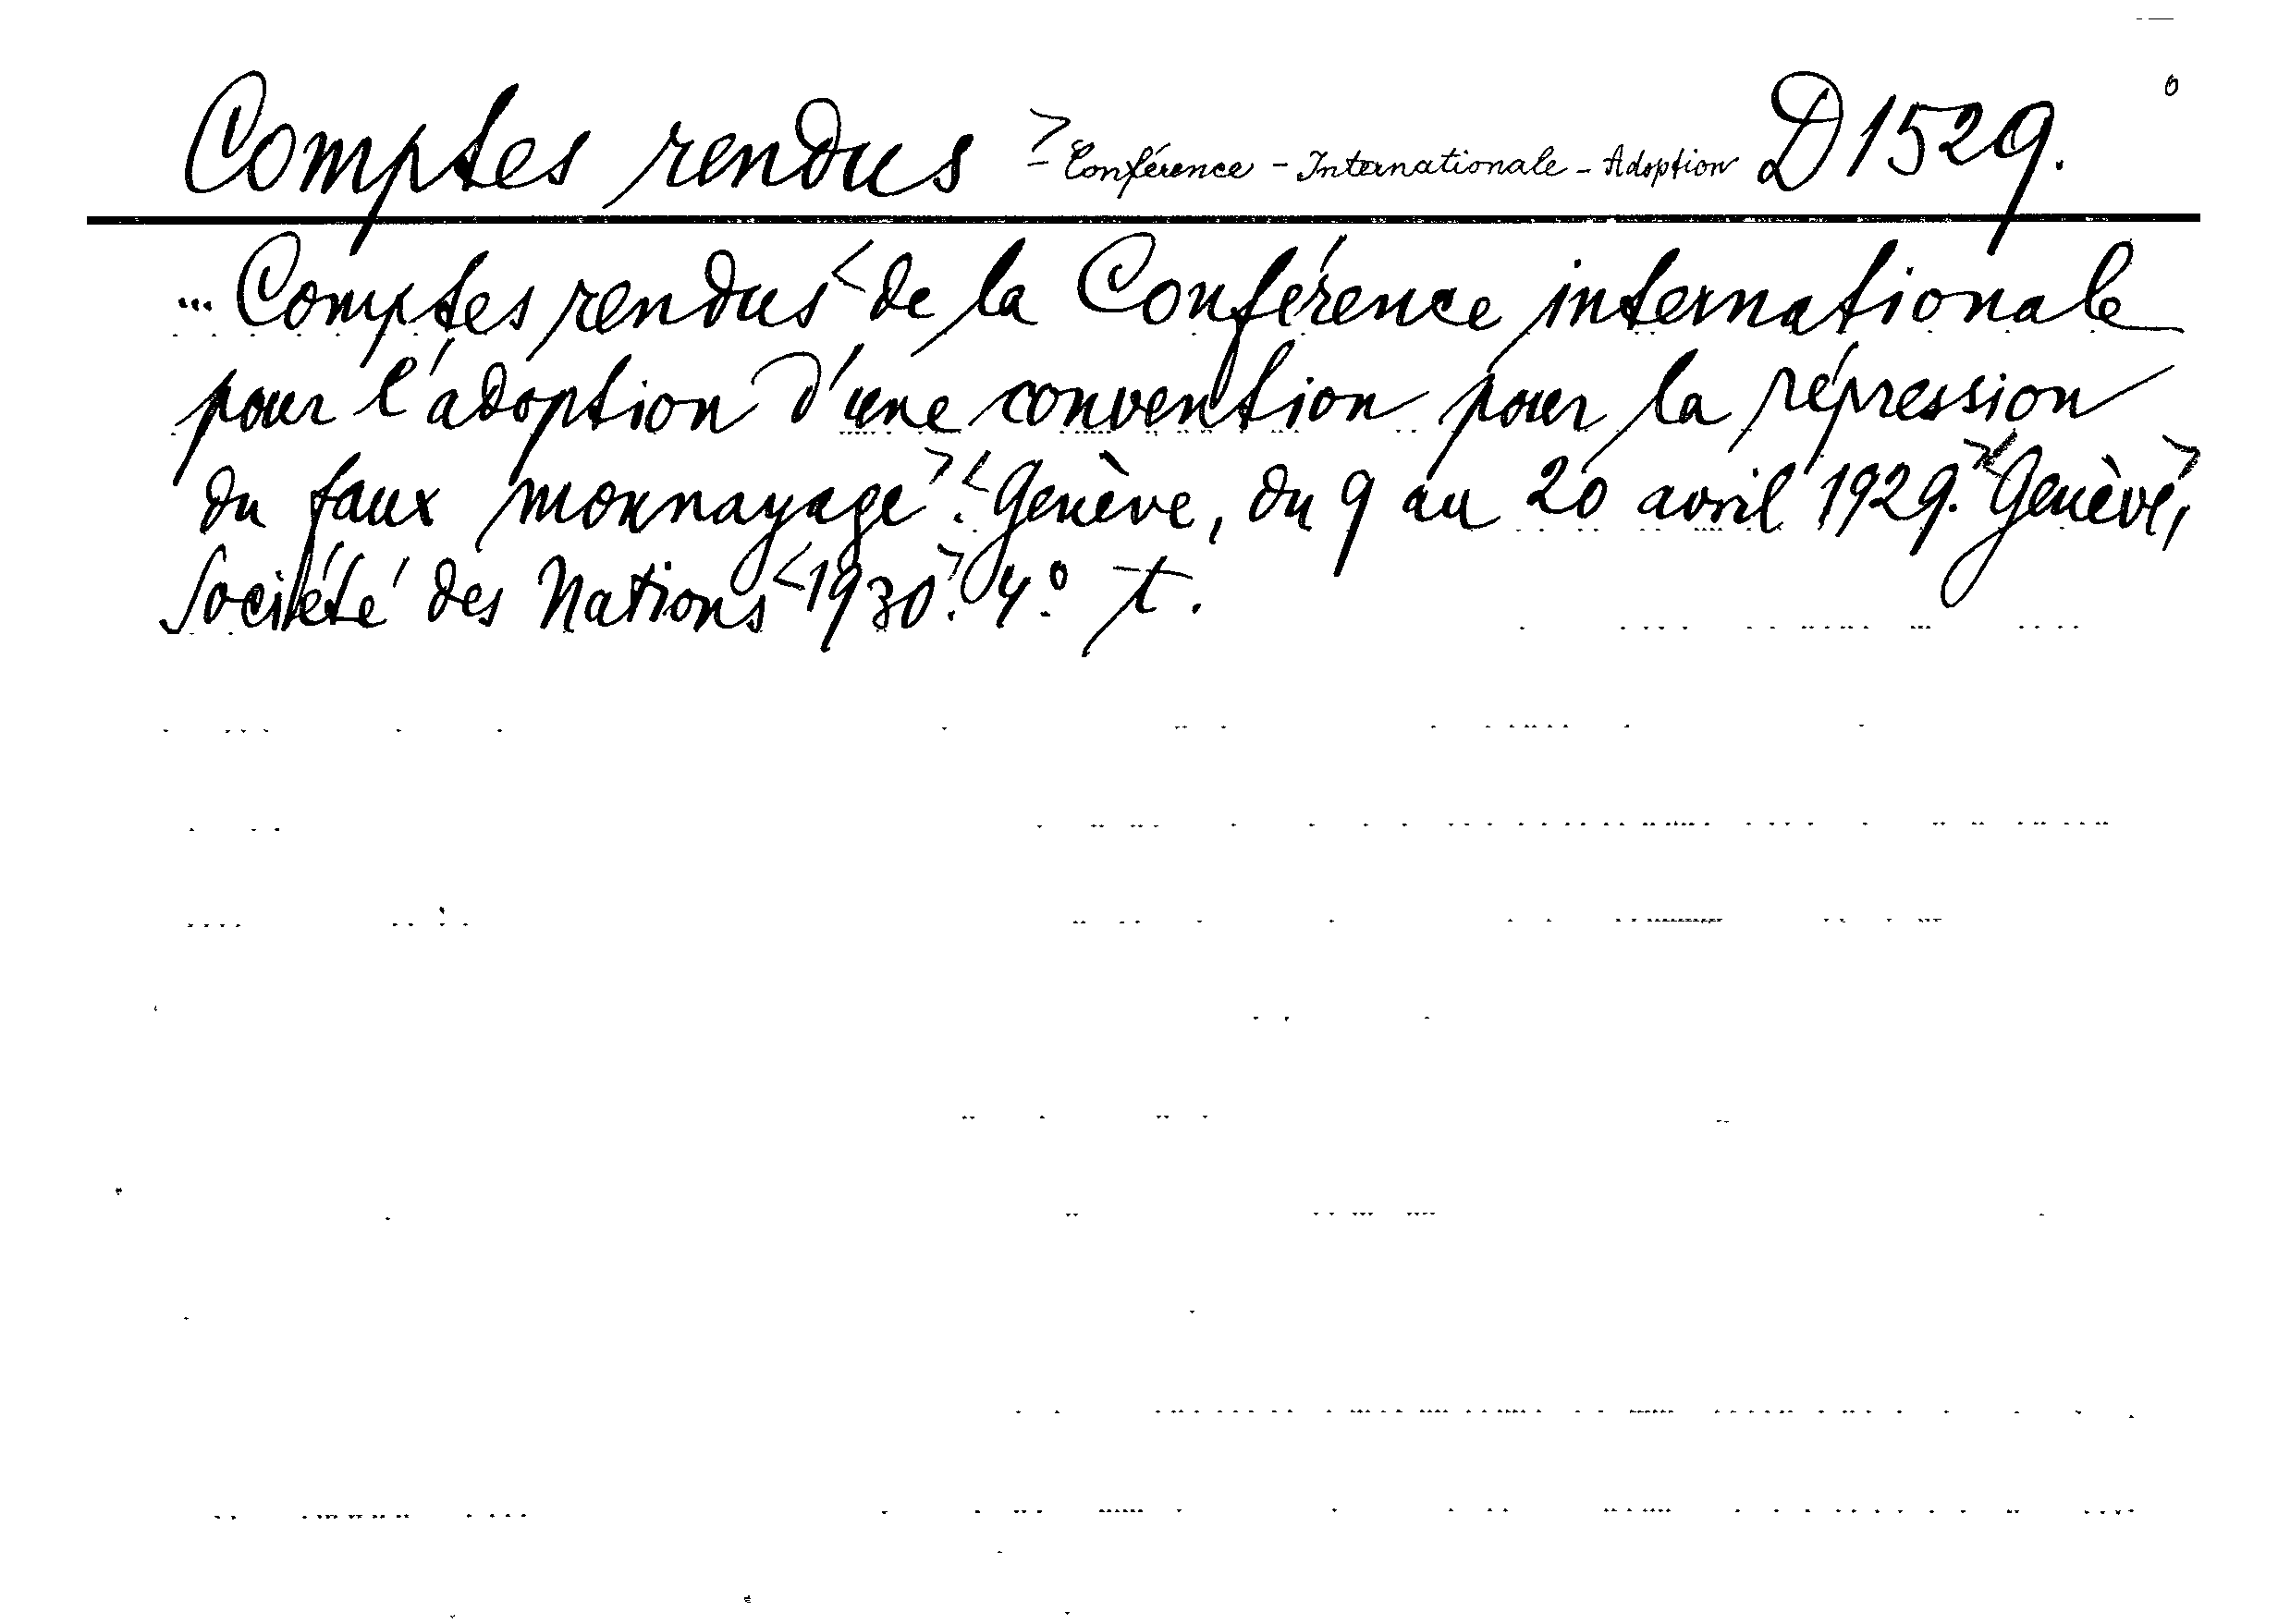 Comptes rendus > - Conférence - Internationale - Adoption D 1529.
... Comptes rendus < de la Conférence internationale
pour l'adoption d'une convention pour la répression
du faux monnayage > . < Genève, du 9 au 20 avril 1929. > < Genève, >
Société des Nations < 1930 > . 4° T.